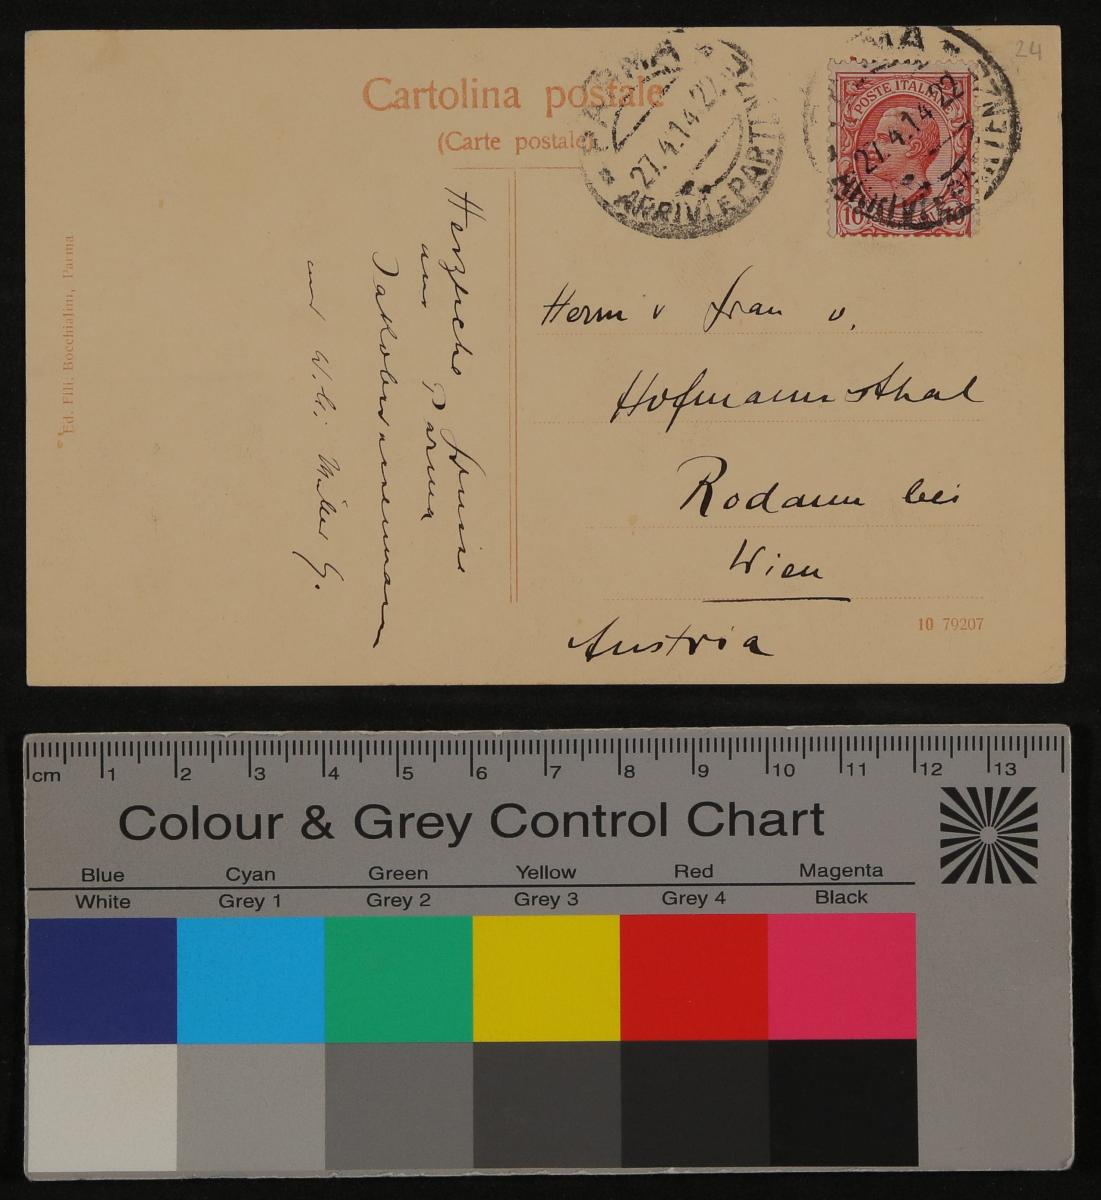 24
Cartolina postale
(Carte postale)
PARMA
27.4.14.22
ARRIVI E PARTENZE
POSTE ITALIANE
10
PARMA
27.4.14 22
ARRIVI E PARTENZE
Herrn v Frau v.
Hofmannsthal
Rodaun bei
Wien
Austria
10 79207
Herzliche Grüsse
aus Parma
und Willi Müller
Ed. Flli. Bocchialini, Parma
cm 1 2 3 4 5 6 7 8 9 10 11 12 13
Colour & Grey Control Chart
Blue Cyan Green Yellow Red Magenta
White Grey 1 Grey 2 Grey 3 Grey 4 Black